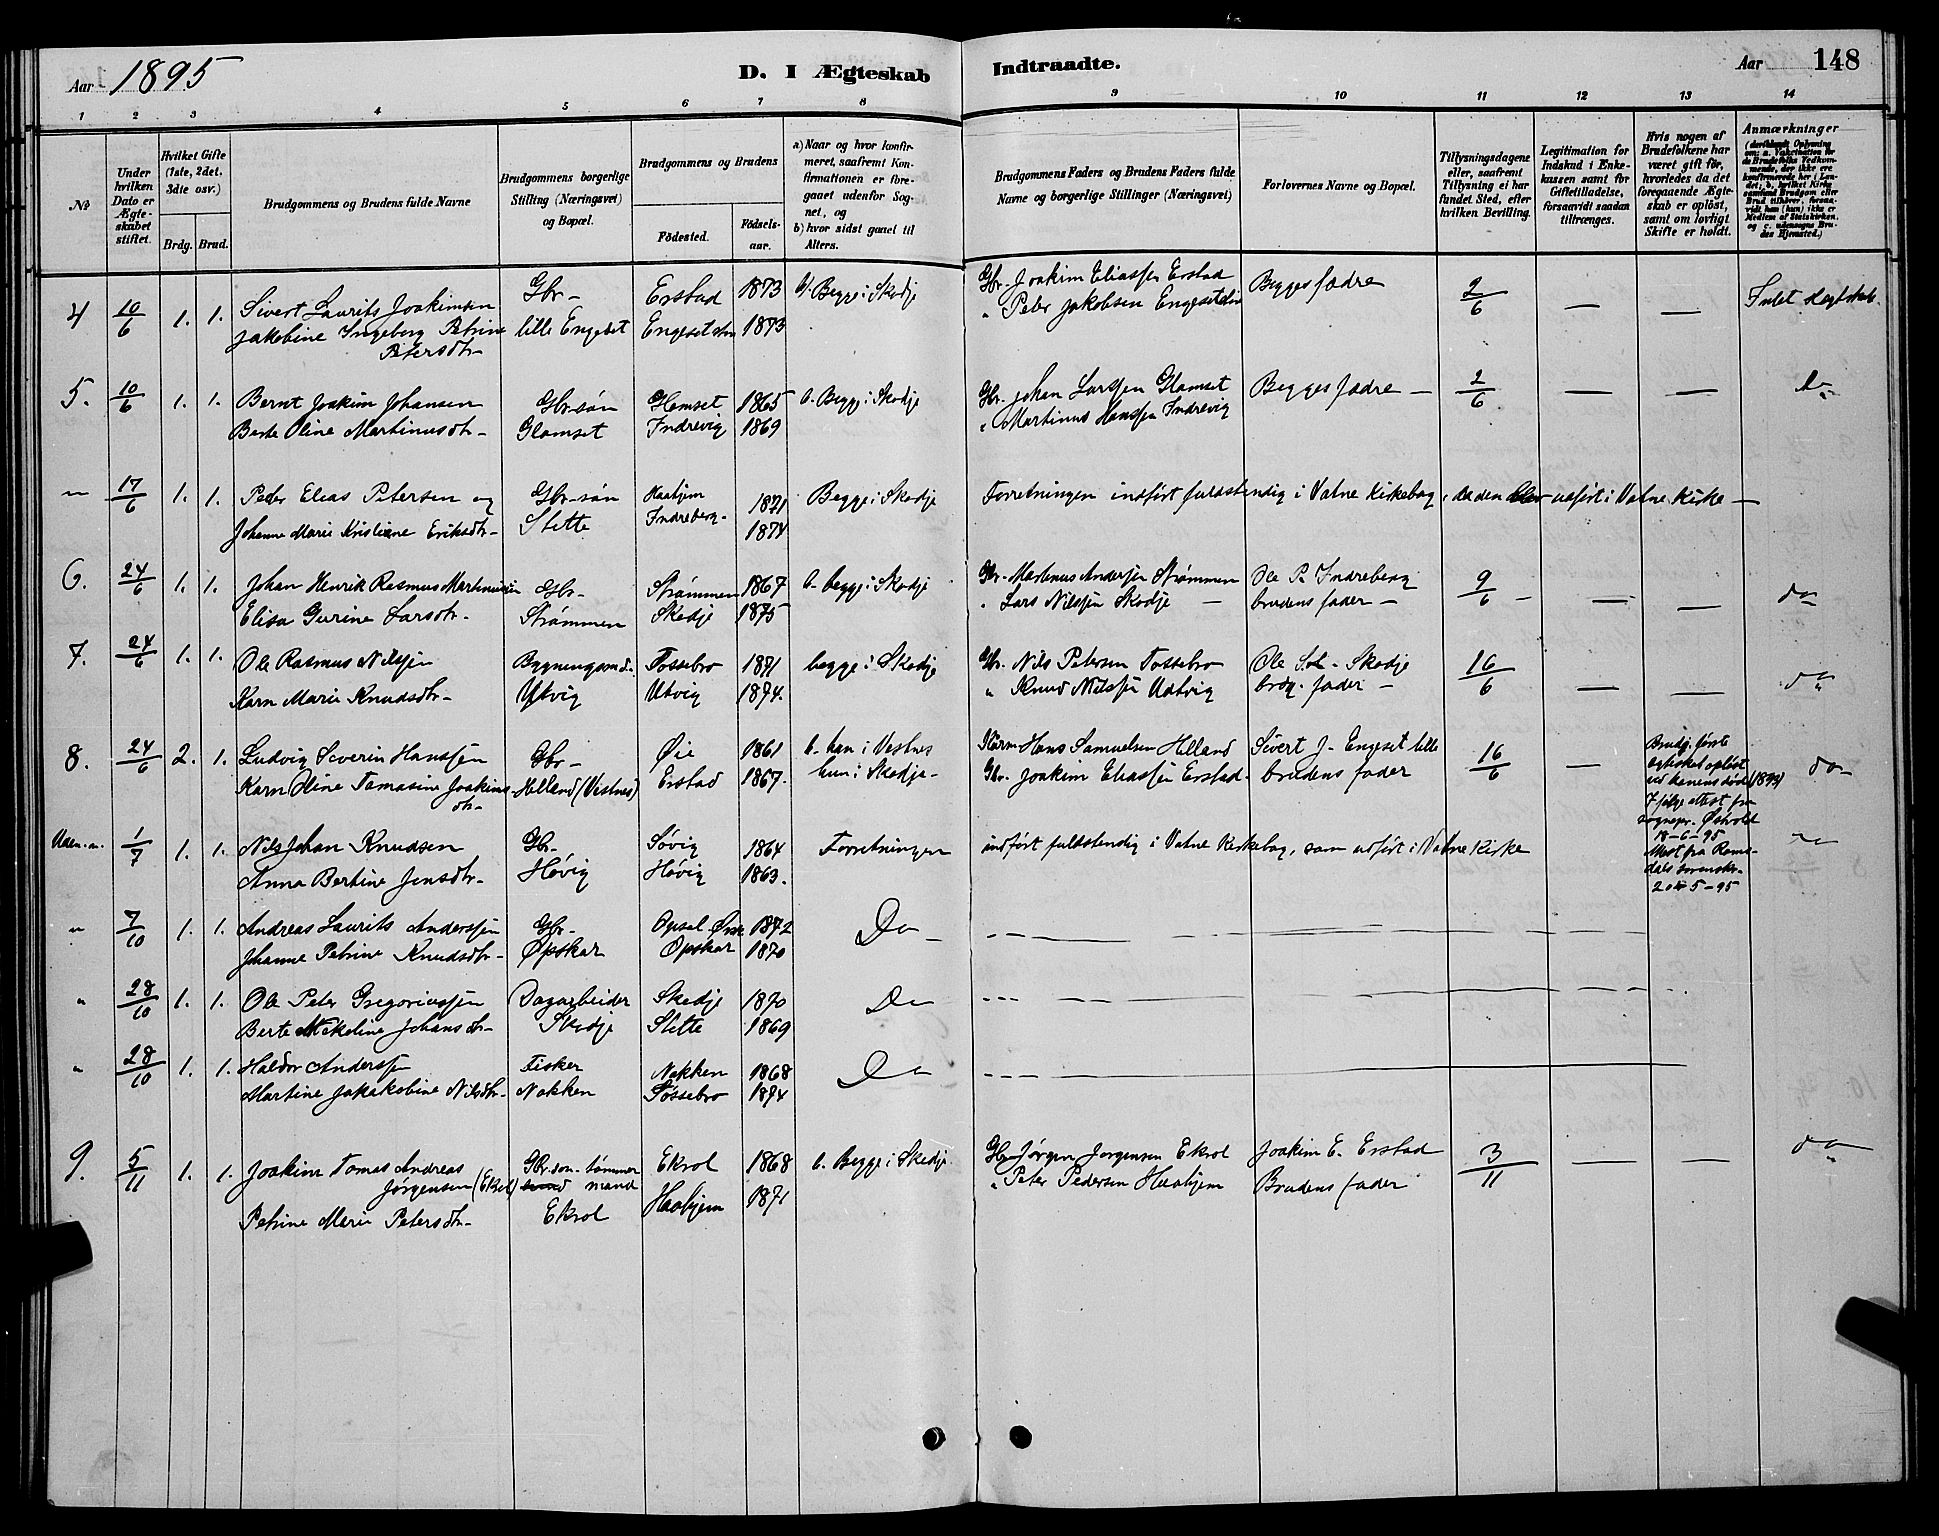 Aar 1895
D. I Ægteskab Indtraadte.
Aar 148
1 2 3 4 5 6 7 8 9 10 11 12 13 14
No
Under hvilken Dato er Ægteskabet stiftet.
Hvilket Gifte (1ste, 2det, 3die osv.)
Brdg. Brud.
Brudgommens og Brudens fulde Navne
Brudgommens borgerlige Stilling (Næringsvei) og Bopæl.
Brudgommens og Brudens
Fødested. Fødselsaar.
a) Naar og hvor konfirmeret, saafremt Konfirmationen er foregaaet udenfor Sognet, og
b) hvor sidst gaaet til Alters.
Brudgommens Faders og Brudens Faders fulde Navne og borgerlige Stillinger (Næringsvei)
Forlovernes Navne og Bopæl.
Tillysningsdagene eller, saafremt Tillysning ei har fundet Sted, efter hvilken Bevilling.
Legitimation for Indskud i Enkekassen samt for Giftetilladelse, forsaavidt saadan tiltrænges.
Hvis nogen af Brudefolkene har været gift før, hvorledes da det foregaaende Ægteskab er opløst, samt om lovligt Skifte er holdt.
Anmærkninger
4 10/6 1. 1. Sivert Laurits Joakimsen Gbr- Erstad 1873 b. Begge i Skodje Gbr. Joakim Eliassen Erstad Begges fædre 2/6 — —
Jakobine Ingeborg Petrine Petersdtr- lille Engeset Engesetdn 1873 " Peter Jakobsen Engesetdn
5. 10/6 1. 1. Bernt Joakim Johansen Gbr-søn Glomset 1865 b. Begge i Skodje Gbr. Johan Larssen Glomset Begges fædre — 2/6 — — do
Berte Oline Martinusdtr- Glomset Indrevig 1869 " Martinus Hanssen Indrevig
" 17/6 1. 1. Peder Elias Petersen og Gbr-søn Haahjem 1871 Begge i Skodje Forretningen indført fuldstendig i Vatne Kirkebog, da den blev udført i Vatne Kirke —
Johanne Marie Kristiane Eriksdtr- Slette Indreberg- 1874
6. 24/6 1. 1. Johan Henrik Rasmus Martinussen Gbr- Strømmen 1867 b- begge i Skodje Gbr- Martinus Andersen Strømmen Ole P. Indreberg 9/6 — — do
Elisa Gurine Larsdtr- Strømmen Skodje 1875 " Lars Nilssen Skodje — brudens fader —
7. 24/6 1. 1. Ole Rasmus Nilssen Bygningsmd. Fossebro 1871 begge i Skodje Gbr. Nils Petersen Fossebro Ole Sol- Skodje 16/6 — — do
Karn Marie Knudsdtr- Utvig Utvig 1874. " Knud Nilssen Udtvig brdg. fader —
8. 24/6 2. 1. Ludvig Severin Hanssen Gbr- Øie 1861 b- han i Vestnes Hans Samuelsen Helland Sivert J- Engeset lille 16/6 — do
Karn Oline Tomasine Joakimsdtr- Helland (Vestnes) Erstad 1867. hun i Skodje- Gbr- Joakim Eliassen Erstad- brudens fader
Brudg. første egteskab opløst ved konens død
ifølge attest fra sognepr. 18-6-95
Attest fra Romsdals sorenskr- 20-5-95
Uden. n. 1/7 1. 1. Nils Johan Knudsen Gbr- Søvig 1864 Forretningen indført fuldstendig i Vatne Kirkebog, som udført i Vatne Kirke
Anna Bertine Jensdtr- Høvig Høvig 1863.
" 7/10 1. 1. Andreas Laurits Anderssen Gbr- Opsal 1872 Do —
Johanne Petrine Knudsdtr- Opskar Opskar 1870
" 28/10 1. 1. Ole Peter Gregoriussen Dagarbeider Skodje 1870 Do
Berte Mikeline Johansdtr- Skodje Slette 1869
" 28/10 1. 1. Haldor Anderssen Fisker Nakken 1868 Do
Martine Jakakobine Nilsdtr- Nakken Fossebro 1874
9. 5/11 1. 1. Joakim Tomas Andreas Jørgensen (Ekrol) Gbr. søn- tømmermand Ekrol 1868 b. Begge i Skodje. Gbr Jørgen Jørgensen Ekrol Joakim E. Erstad 3/11 — — do
Petrine Marie Petersdtr- Ekrol Haahjem 1871 " Peter Pedersen Haahjem Brudens fader